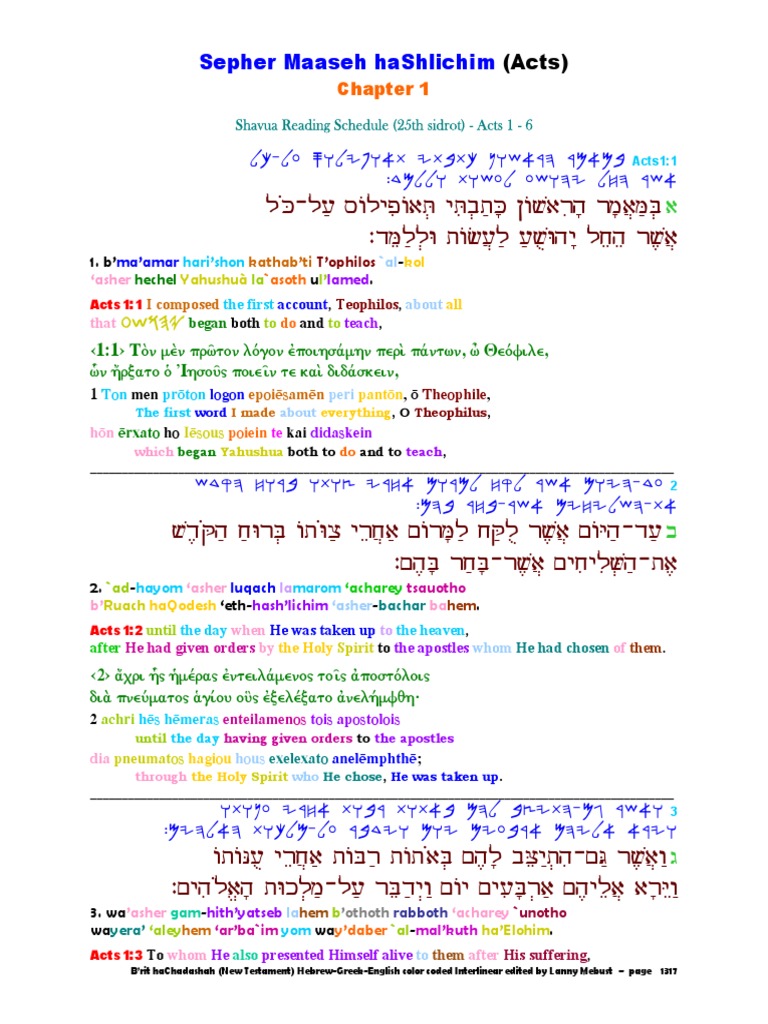 Sepher Maaseh haShlichim (Acts)
Chapter 1
Shavua Reading Schedule (25th sidrot) - Acts 1 - 6
Acts1:1
א בְּמַּאֲמָר הָרִאשׁוֹן כָּתַבְתִּי תְּאוֹפִילוֹס עַל־כֹּל
אֲשֶׁר הֵחֵל יָהוּשֻׁעַ לַעֲשׂוֹת וּלְלַמֵּד׃
1. b'ma'amar hari'shon kathab'ti T'ophilos `al-kol
'asher hechel Yahushuà la`asoth ul'lamed.
Acts 1:1 I composed the first account, Teophilos, about all
that began both to do and to teach,
‹1:1› Τὸν μὲν πρῶτον λόγον ἐποιησάμην περὶ πάντων, ὦ Θεόφιλε,
ὧν ἤρξατο ὁ Ἰησοῦς ποιεῖν τε καὶ διδάσκειν,
1 Ton men prōton logon epoiēsamēn peri pantōn, ō Theophile,
The first word I made about everything, O Theophilus,
hōn ērxato ho Iēsous poiein te kai didaskein
which began Yahushua both to do and to teach,
2
ב עַד־הַיּוֹם אֲשֶׁר לֻקַּח לַמָּרוֹם אַחֲרֵי צַוֹּתוֹ בְּרוּחַ הַקֹּדֶשׁ
אֶת־הַשְּׁלִיחִים אֲשֶׁר־בָּחַר בָּהֶם׃
2. `ad-hayom 'asher luqach lamarom 'acharey tsauotho
b'Ruach haQodesh 'eth-hash'lichim 'asher-bachar bahem.
Acts 1:2 until the day when He was taken up to the heaven,
after He had given orders by the Holy Spirit to the apostles whom He had chosen of them.
‹2› ἄχρι ἧς ἡμέρας ἐντειλάμενος τοῖς ἀποστόλοις
διὰ πνεύματος ἁγίου οὓς ἐξελέξατο ἀνελήμφθη·
2 achri hēs hēmeras enteilamenos tois apostolois
until the day having given orders to the apostles
dia pneumatos hagiou hous exelexato anelēmphthē;
through the Holy Spirit who He chose, He was taken up.
3
ג וַאֲשֶׁר גַּם־הִתְיַצֵּב לָהֶם בְּאֹתוֹת רַבּוֹת אַחֲרֵי עֻנּוֹתוֹ
וַיֵּרָא אֲלֵיהֶם אַרְבָּעִים יוֹם וַיְדַבֵּר עַל־מַלְכוּת הָאֱלֹהִים׃
3. wa'asher gam-hith'yatseb lahem b'othoth rabboth 'acharey `unotho
wayera' 'aleyhem 'ar'ba`im yom way'daber `al-mal'kuth ha'Elohim.
Acts 1:3 To whom He also presented Himself alive to them after His suffering,
B'rit haChadashah (New Testament) Hebrew-Greek-English color coded Interlinear edited by Lanny Mebust – page 1317